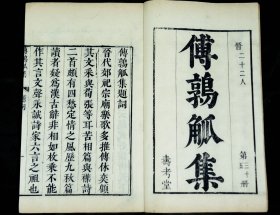 晉二十二人
傅鶉觚集
第二十
五冊
壽考堂
傅鶉觚集題詞
晉代郊祀宗廟樂歌多推傅休奕顧
其文采與荀張等耳苦相篇與雜詩
二首頗有四愁定情之風歷九秋篇
讀者疑爲漢古辭非相如枚乘不能
作其言文聲永誠詩家六言之祖也